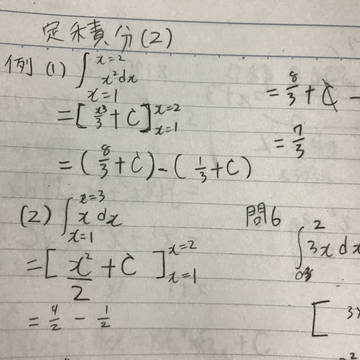 定積分(2)
例(1) ∫_{x=1}^{x=2} x²dx
= [x³/3 + C]_{x=1}^{x=2}
= (8/3 + C) - (1/3 + C)
= 8/3 + C -
= 7/3
(2) ∫_{x=1}^{x=3} x dx
= [x²/2 + C]_{x=1}^{x=2}
= 4/2 - 1/2
問6
∫^{2} 3x dx
[ 3